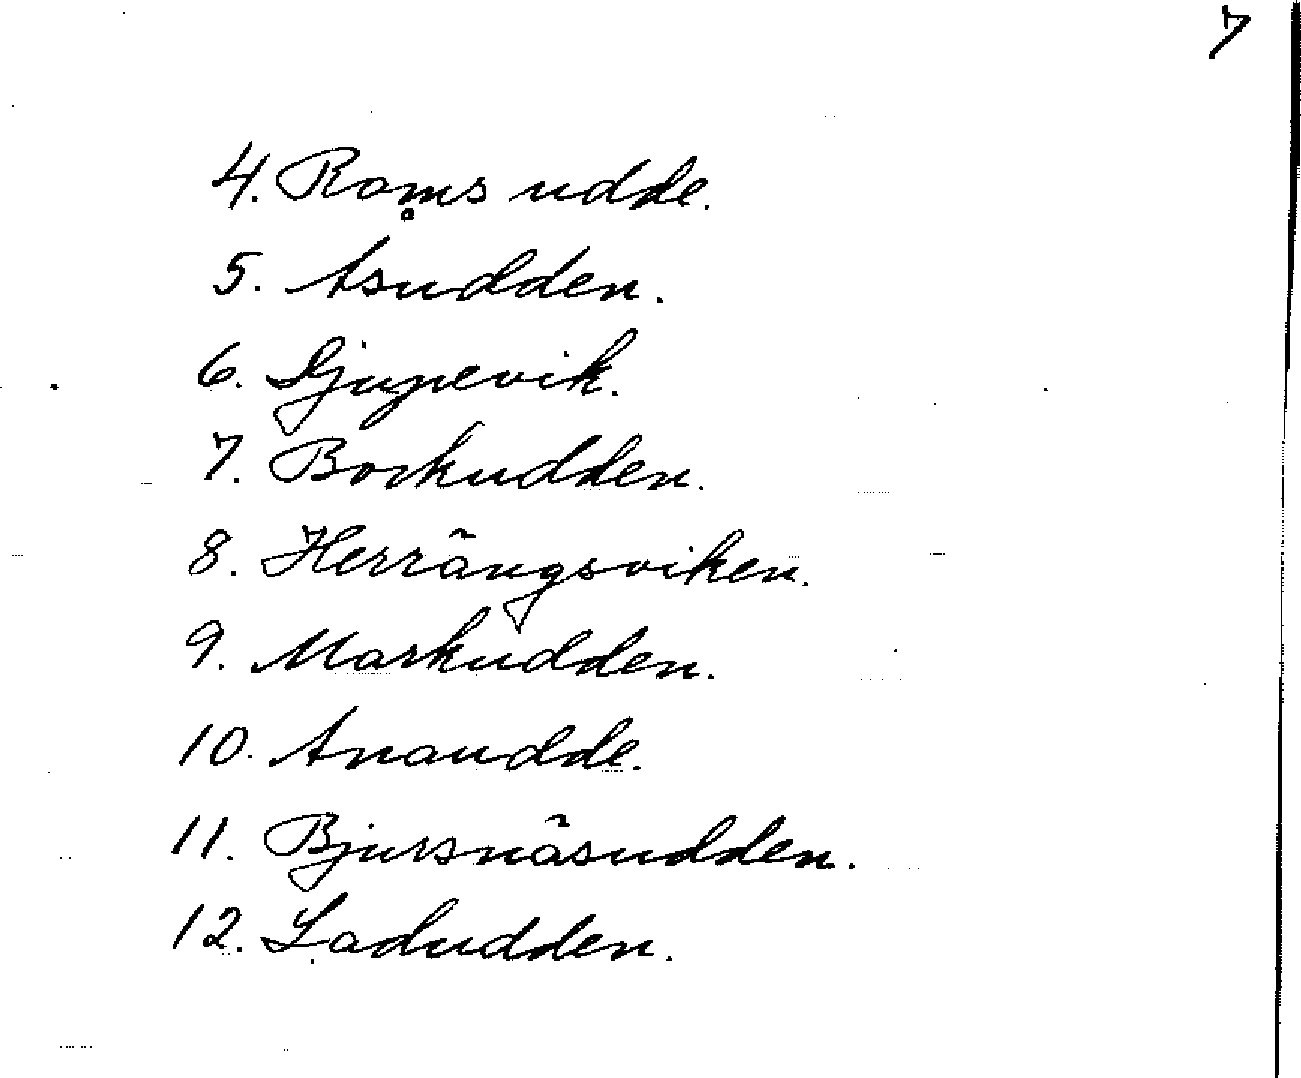 7
4. Roms udde.
5. Åsudden.
6. Djupevik.
7. Bockudden.
8. Herrängsviken.
9. Markudden.
10. Anaudde.
11. Bjursnäsudden.
12. Ladudden.